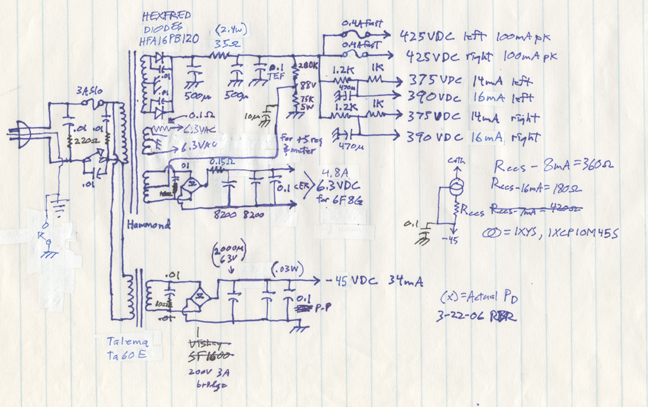 HEXFRED
DIODES
HFA16PB120
(2.4W)
35Ω
0.4A fast
0.4A fast
425VDC left 100mA pk
425VDC right 100mA pk
375VDC 14mA left
390VDC 16mA left
375VDC 14mA right
390VDC 16mA right
1.2K
1K
470μ
1.2K
1K
470μ
280K
88V
75K
5W
0.1
TEF
500μ
500μ
10μ
.01
.01
0.1Ω
6.3VAC
6.3VAC
for +5 reg
& meter
3A Slo
.01
.01
220Ω
.01
Hammond
.01
0.15Ω
8200
8200
0.1 CER
4.8A
6.3VDC
for 6F8G
Cath
Rccs
0.1
-45
Rccs - 8mA = 360Ω
Rccs - 16mA = 180Ω
Rccs - 7mA = 420Ω
= IXYS, IXCP10M45S
(x) = Actual PD
3-22-06 RBR
2000μ
63V
(.03W)
-45 VDC 34mA
.01
.01
0.1
P.P
Talema
ta60E
Vishay
SF1600
200V 3A
bridge